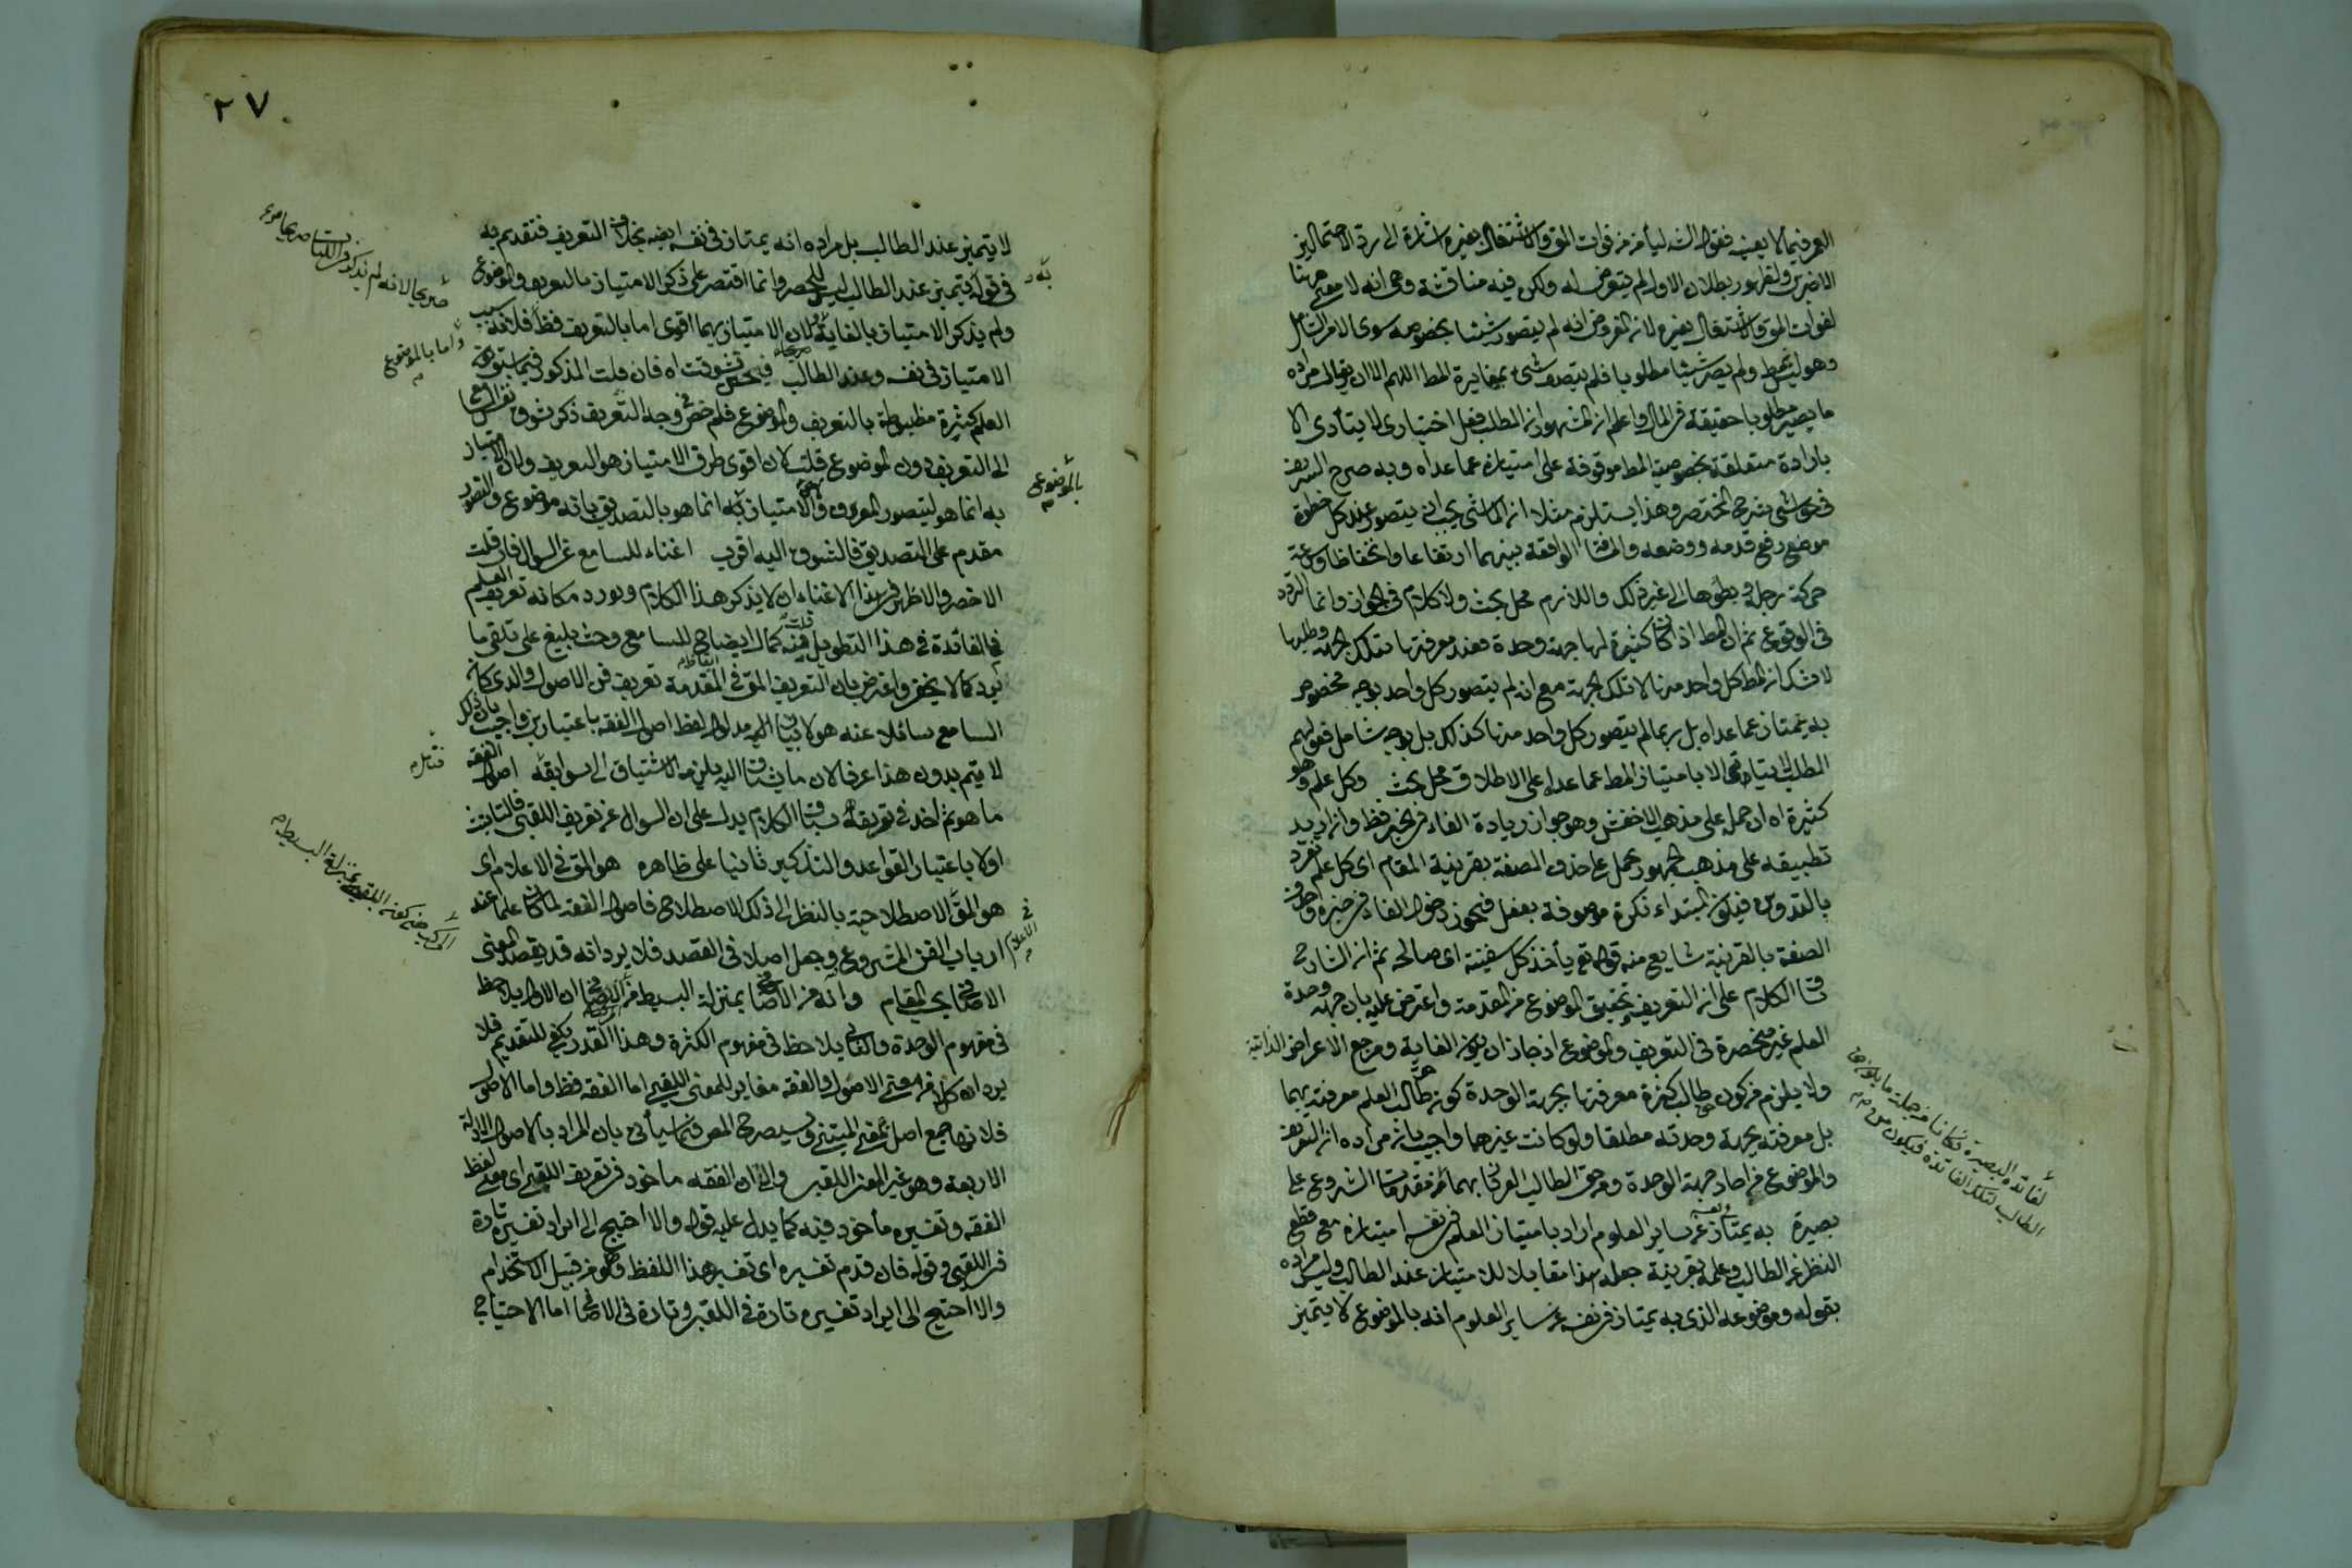 العمر فيما لا يعنيه فقول الشه ليأمن من فوات المق والاشتغال بغيره اشارة الى رد الاحتمالين
الاخيرين ولظهور بطلان الاول لم يتعرض له ولكن فيه مناقشة وهى انه لا معنى ههنا
لفوات المق والاشتغال بغيره لانه المفروض انه لم يتصور شيئا بخصوصه سوى الامر الشامل
وهو ليس بمط ولم يصر شيئا مطلوبا فلم يتصف شئ بمغايرة المط اللهم الا ان يقال مراده
ما يصير مطلوبا حقيقة فى المال واعلم ان المشهور ان المطلب فعل اختيارى لا يتأدى الا
بارادة متعلقة بخصوصية المط موقوفة على امتيازه عما عداه وبه صرح الشريف
فى حواشى شرح المختصر وهذا يستلزم مثلا ان الماشى يجب ان يتصور عند كل خطوة
موضع رفع قدمه ووضعه والمسافة الواقعة بينهما ارتفاعا وانخفاضا وسرعة
حركة رجله وبطؤها الى غير ذلك واللازم محل بحث ولا كلام فى الجواز وانما التردد
فى الوقوع ثم ان المط اذا كان كثيرة لها جهة وحدة فعند معرفتها بتلك الجهة وطلبها
لا شك ان المط كل واحد منها لا تلك الجهة مع انه لم يتصور كل واحد بوجه مخصوص
به يمتاز عما عداه بل ربما لم يتصور كل واحد منها كذلك بل بوجه شامل فقولهم
الطلب لا يتأتى الا بامتياز المط عما عداه على الاطلاق محل بحث وكل علم وهو
كثيرة اه ان حمل على مذهب الاخفش وهو جواز زيادة الفاء فى الخبر فظ وان اريد
تطبيقه على مذهب الجمهور يحمل على حذف الصفة بقرينة المقام اى كل علم تفرد
بالتدوين فيكون المبتداء نكرة موصوفة بفعل فيجوز دخول الفاء فى خبره وحذف
الصفة بالقرينة شايع منه قوله تع يأخذ كل سفينة اى صالحة ثم ان الشارح
ساق الكلام على ان التعريف وتحقيق الموضوع من المقدمة واعترض عليه بان جهة وحدة
العلم غير منحصرة فى التعريف والموضوع اذ جاز ان يكون الغاية ومرجع الاعراض الذاتية
ولا يلزم من كون حق طالب كثرة معرفتها بجهة الوحدة كون حق طالب العلم معرفته بهما
بل معرفته بجهة وحدته مطلقا ولو كانت غيرهما واجيب بان مراده ان التعريف
والموضوع من احاد جهة الوحدة ومن حق الطالب العرفان بهما فمن مقدمات الشروع على
بصيرة به يمتاز عن ساير العلوم اراد بامتياز العلم فى نفسه امتيازه مع قطع
النظر عن الطالب وعلمه بقرينة جعله هذا مقابلا للامتياز عند الطالب وليس مراده
بقوله وموضوعه الذى به يمتاز فى نفسه عن ساير العلوم انه بالموضوع لا يتميز
لفائدة البصيرة فكانا من جملة ما يلزمها
الطالب لتلك الفائدة فيكون من
٢٧
لا يتميز عند الطالب بل مراده انه يمتاز فى نفسه ايضه بخلاف التعريف فتقديم به
فى قوله به يتميز عند الطالب ليس للحصر وانما اقتصر على ذكر الامتياز بالتعريف والموضوع
ولم يذكر الامتياز بالغاية لان الامتياز بهما اقوى اما بالتعريف فظ فلانه سبب
الامتياز فى نفسه وعند الطالب فحين تشوقت اه فان قلت المذكور فيما سبق
العلم كثرة مظبوطة بالتعريف والموضوع فلم خص وجه التعريف ذكر تشوق نفس السامع
الى التعريف دون الموضوع قلت لان اقوى طرق الامتياز هو التعريف ولان الامتياز
به انما هو ليتصور المعرف والامتياز به انما هو بالتصديق بانه موضوع والتصور
مقدم على التصديق فالتشوق اليه اقرب اغناء للسامع عن السؤال فان قلت
الاخصر والاظهر فى هذا الاغناء ان لا يذكر هذا الكلام ويورد مكانه تعريف العلم
فما الفائدة فى هذا التطويل قلت فيه كمال ايضاح للسامع وحث بليغ على تلقى ما
يرد كما لا يخفى واعترض بان التعريف المق فى المقدمة تعريف فن الاصول والذى كان
السامع سائلا عنه هو لا بيان مدلول لفظ اصول الفقه باعتبارين واجيب بان ذلك
لا يتم بدون هذا عرفا لان ما يشتاق اليه يلزمه الاشتياق الى سوابقه اصول الفقه
ما هو ثم اخذ فى تعريفه سياق الكلام يدل على ان السؤال عن تعريف اللقبى فالتانيث
اولا باعتبار القواعد والتذكير ثانيا على ظاهره هو المق فى الاعلام اى
هو المق الاصطلاحية بالنظر الى ذلك الاصطلاح فاصول الفقه لما كان علما عند
ارباب الفن المشروع وجعل اصلا فى القصد فلا يرد انه قد يقصد المعنى
الاضافى بحسب المقام وانه من الاضافى بمنزلة البسيط من المركب ان الاول يلاحظ
فى مفهوم الوحدة والثانى يلاحظ فى مفهوم الكثرة وهذا القدر يكفى للتقديم فلا
يرد ان كلا من معنى الاصول والفقه مغاير للمعنى اللقبى اما الفقه فظ واما الاصول
فلانها جمع اصل بمعنى المبتنى وسيصرح المص فيما سيأتى بان المراد بالاصول الادلة
الاربعة وهو غير المعنى اللقبى والى ان الفقه ماخوذ فى تعريف اللقبى اى معنى لفظ
الفقه وتفسيره مأخوذ فيه كما يدل عليه قوله والا احتيج الى ايراد تفسيره تارة
فى اللقبى وقوله فان قدم تفسيره اى تفسير هذا اللفظ وهو من قبيل الاستخدام
والا احتيج الى ايراد تفسيره تارة فى اللقبى وتارة فى الاضافى اما الاحتياج
صريحا لانه لم يذكر فى اللقبات صريحا
واما بالموضوع
بالموضوع
فتامل
فى الاعلام